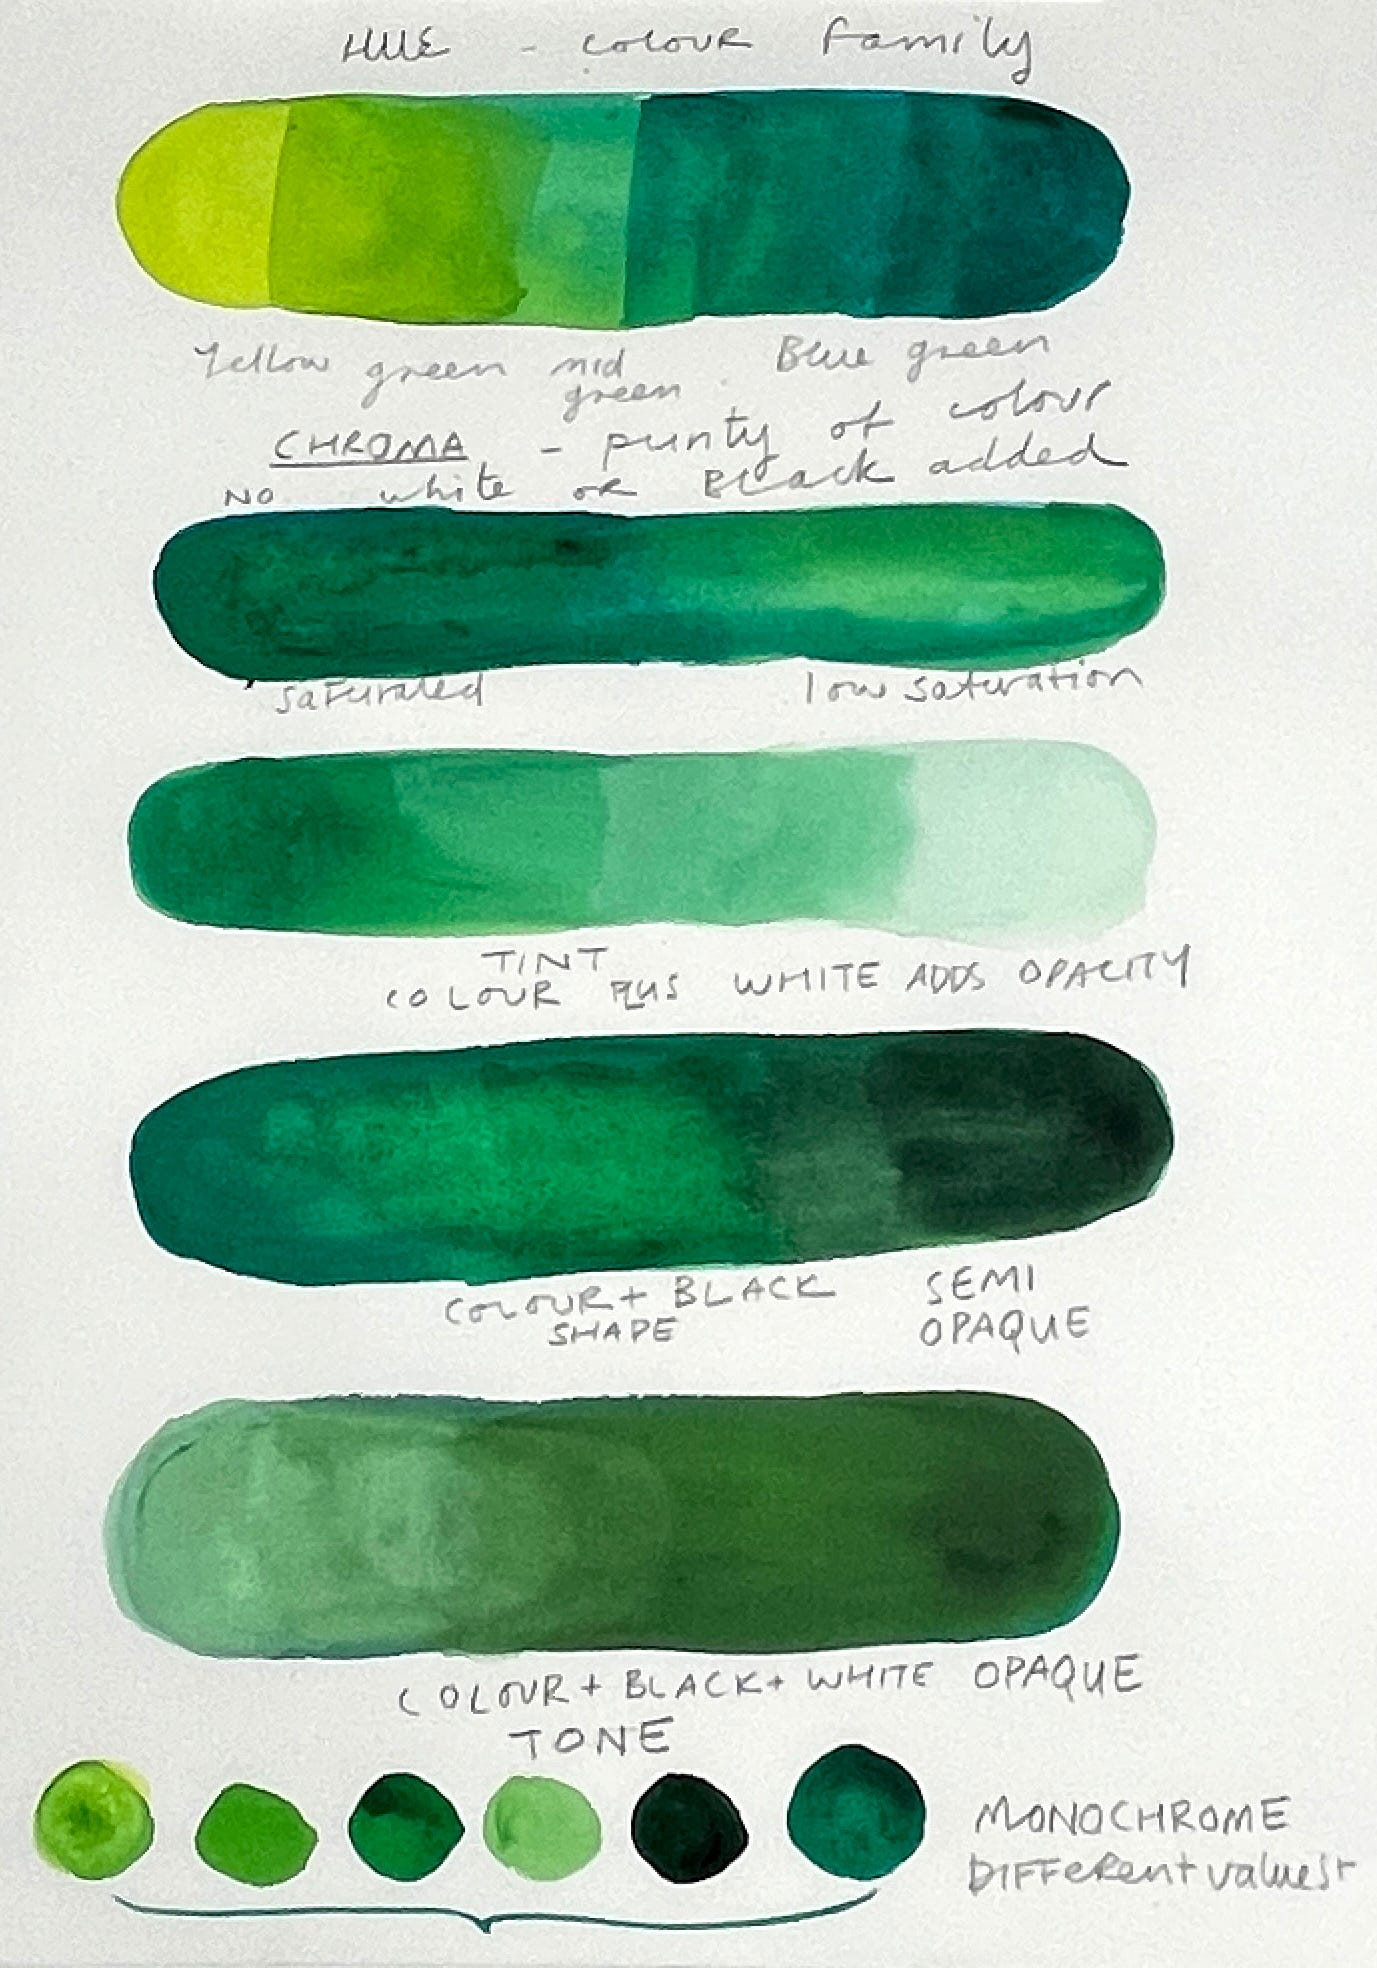 HUE - colour family
Yellow green mid green Blue green
CHROMA - purity of colour
NO white or Black added
saturated low saturation
TINT
COLOUR PLUS WHITE ADDS OPACITY
COLOUR + BLACK SEMI
SHADE OPAQUE
COLOUR + BLACK + WHITE OPAQUE
TONE
MONOCHROME
DIFFerent values